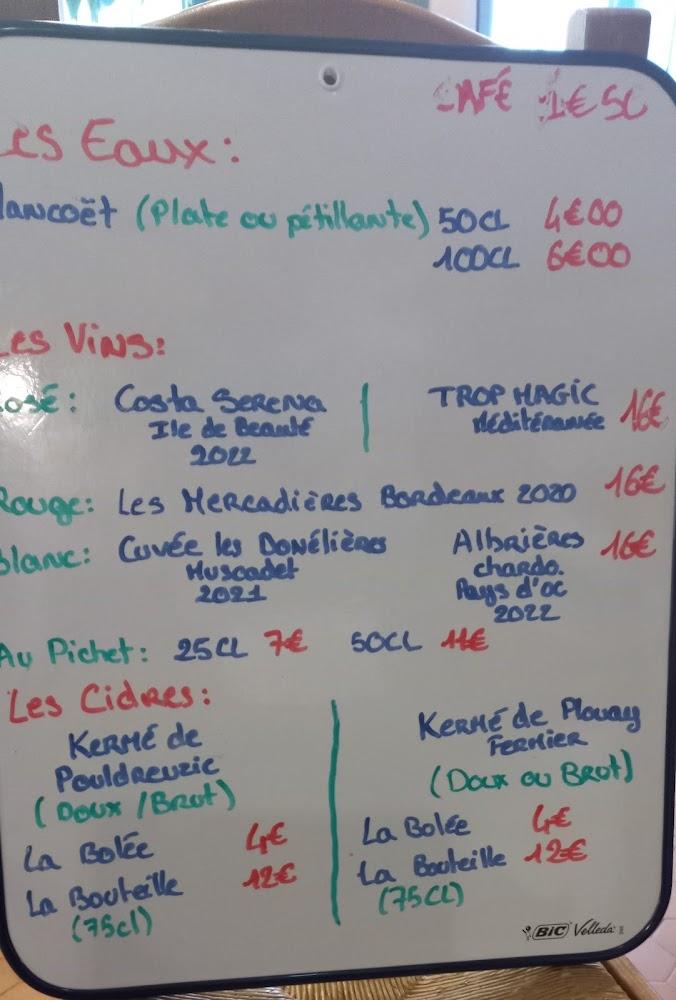 CAFÉ 1€50
Les Eaux:
lancoët (Plate ou pétillante) 50CL 4€00
100CL 6€00
Les Vins:
Rosé: Costa Serena | TROP MAGIC 16€
Ile de Beauté Méditérannée
2022
Rouge: Les Mercadières Bordeaux 2020 16€
Blanc: Cuvée les Donélières Albrières 16€
Muscadet chardo.
2021 Pays d'oc
2022
Au Pichet: 25CL 7€ 50CL 11€
Les Cidres:
Kermé de
Pouldreuzic
(Doux/Brut)
La Bolée 4€
La Bouteille 12€
(75cl)
Kermé de Plouay
Fermier
(Doux ou Brut)
La Bolée 4€
La Bouteille 12€
(75CL)
BIC Velleda